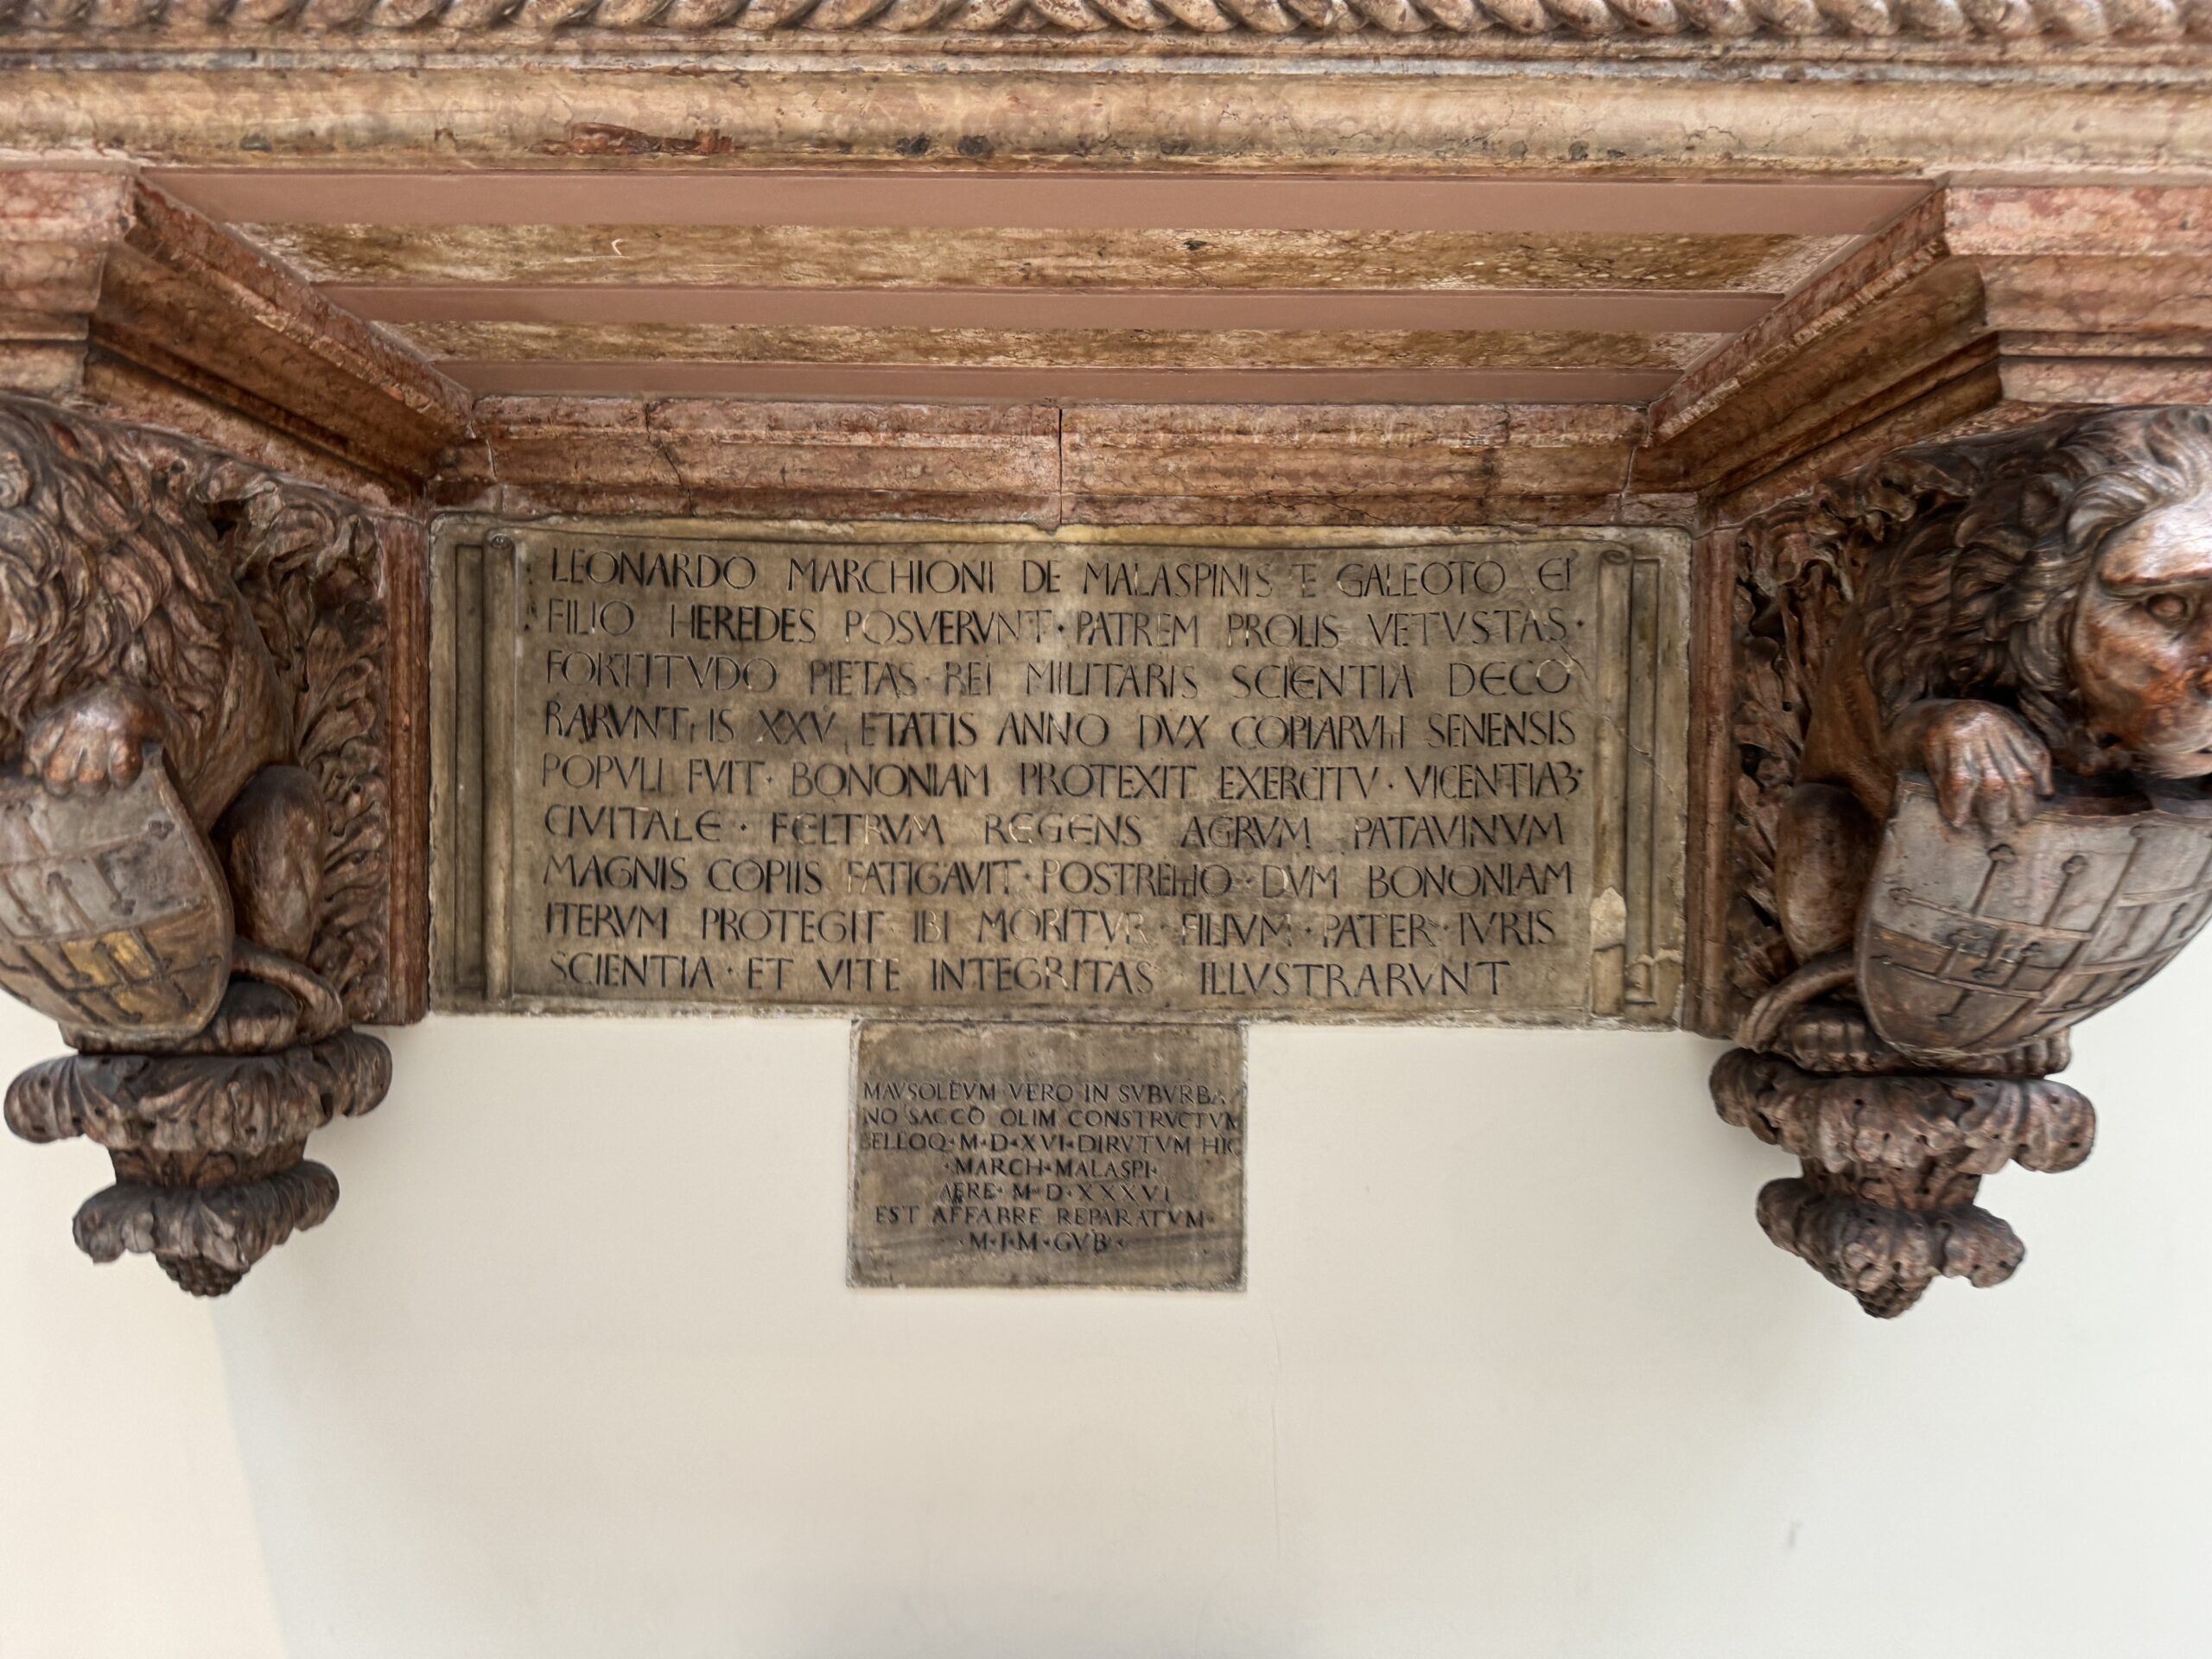 LEONARDO MARCHIONI DE MALASPINIS E GALEOTO EI
FILIO HEREDES POSVERVNT · PATREM PROLIS VETVSTAS ·
FORTITVDO PIETAS · REI MILITARIS SCIENTIA DECO
RARVNT · IS XXV ETATIS ANNO DVX COPIARVM SENENSIS
POPVLI FVIT · BONONIAM PROTEXIT EXERCITV · VICENTIA3 ·
CIVITALE · FELTRVM REGENS AGRVM PATAVINVM
MAGNIS COPIIS FATIGAVIT · POSTREMO · DVM BONONIAM
ITERVM PROTEGIT · IBI MORITVR · FILIVM · PATER · IVRIS
SCIENTIA · ET VITE INTEGRITAS ILLVSTRARVNT
MAVSOLEVM VERO IN SVBVRBA
NO SACCO OLIM CONSTRVCTVM
BELLOQ · M · D · XVI · DIRVTVM HIC
· MARCH · MALASPI ·
AERE · M · D · XXXVI
EST AFFABRE REPARATVM ·
· M · I · M · GVB ·